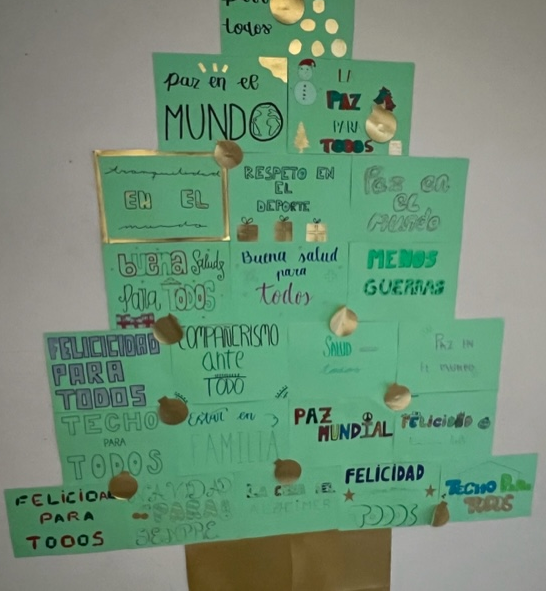 todos
Paz en el
MUNDO
LA
PAZ
PARA
TODOS
tranquilidad
EN EL
mundo
RESPETO EN
EL
DEPORTE
Paz en
el
MUNDO
buena Salud
para TODOS
Buena salud
para
todos
MENOS
GUERRAS
FELICICIDAD
PARA
TODOS
COMPAÑERISMO
ante
TODO
SALUD
PAZ EN
MUNDO
TECHO
PARA
TODOS
Estar en
FAMILIA
PAZ
MUNDIAL
FELICIDAD
FELICIDAD
PARA
TODOS
PARA
SIEMPRE
LA CURA DEL
FELICIDAD
TODOS
TECHO PARA
TODOS